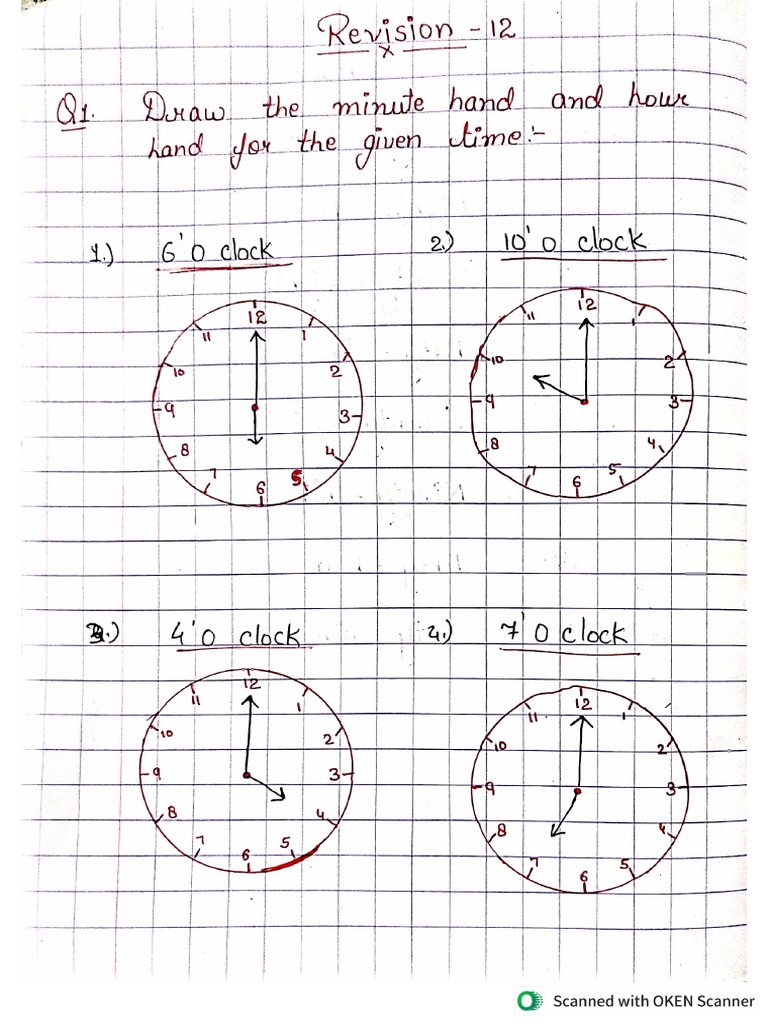 Revision - 12
x
Q1. Draw the minute hand and hour
hand for the given time:-
1.) 6'O clock
2.) 10'O clock
12
11
1
10
2
9
3
8
4
7
5
6
12
11
1
10
2
9
3
8
4
7
5
6
3.) 4'O clock
4.) 7'O clock
12
11
1
10
2
9
3
8
4
7
5
6
12
11
1
10
2
9
3
8
4
7
5
6
Scanned with OKEN Scanner